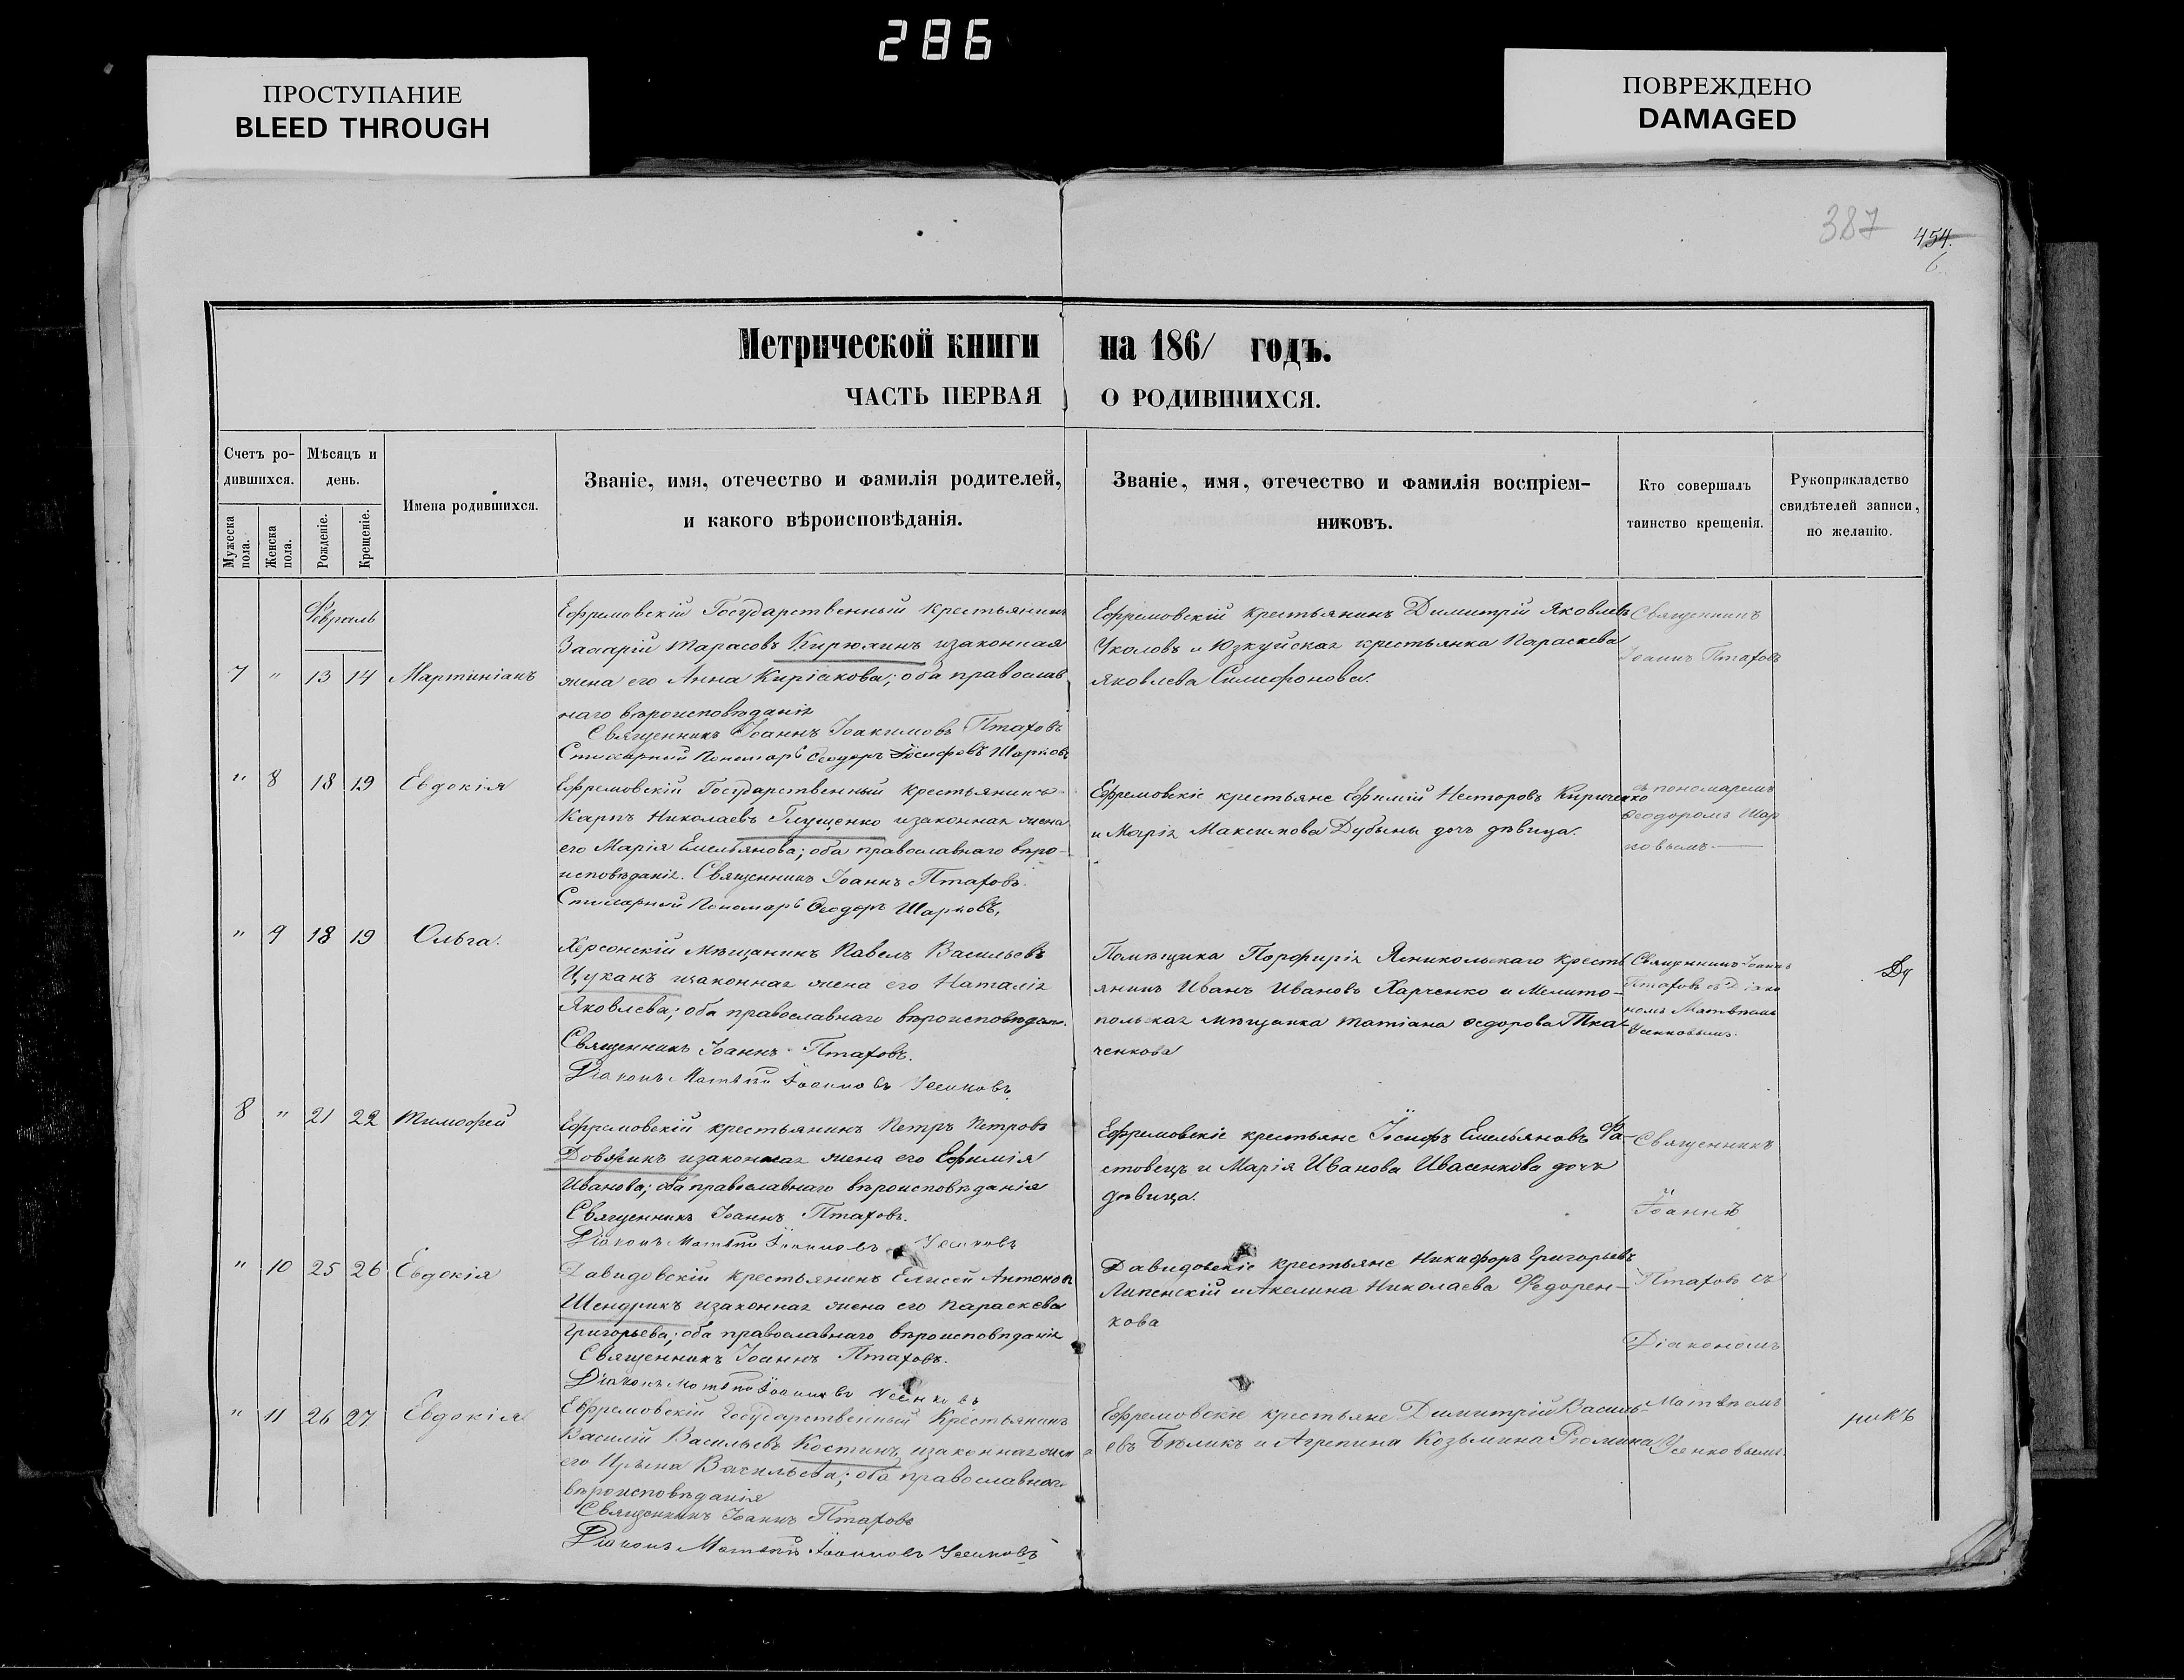 286
ПРОСТУПАНИЕ
BLEED THROUGH
ПОВРЕЖДЕНО
DAMAGED
387
454.
6.
Метрической книги на 1861 годъ.
ЧАСТЬ ПЕРВАЯ О РОДИВШИХСЯ.
Счетъ ро-
дившихся.
Мужеска пола.
Женска пола.
Мѣсяцъ и
день.
Рожденіе.
Крещеніе.
Имена родившихся.
Званіе, имя, отечество и фамилія родителей,
и какого вѣроисповѣданія.
Званіе, имя, отечество и фамилія воспріем-
никовъ.
Кто совершалъ
таинство крещенія.
Рукоприкладство
свидѣтелей записи,
по желанію.
Февраль
7 " 13 14 Мартиніанъ
Ефремовскій Государственный крестьянинъ
Захарій Тарасовъ Кирюхинъ изаконная
жена его Анна Киріакова; оба православ
наго вѣроисповѣданія
Священникъ Іоаннъ Іоакимовъ Птаховъ
Стихарный Пономарь Ѳеодоръ Іосифовъ Шарковъ
Ефремовскій крестьянинъ Димитрій Яковлевъ
Уколовъ и Юзкуйская крестьянка Параскева
Яковлева Симифонова.
Священникъ
Іоаннъ Птаховъ
" 8 18 19 Евдокія
Ефремовскій Государственный крестьянинъ
Карпъ Николаевъ Глущенко изаконная жена
его Марія Емельянова; оба православнаго вѣро-
исповѣданія. Священникъ Іоаннъ Птаховъ.
Стихарный Пономарь Ѳеодоръ Шарковъ,
Ефремовскіе крестьяне Ефимій Несторовъ Кириченко
и Марія Максимова Дубыны дочь дѣвица.
съ пономаремъ
Ѳеодоромъ Шар
ковымъ.
" 9 18 19 Ольга.
Херсонскій Мѣщанинъ Павелъ Васильевъ
Цуканъ изаконная жена его Наталія
Яковлева; оба православнаго вѣроисповѣдан.
Священникъ Іоаннъ Птаховъ.
Діаконъ Матвѣй Іоанновъ Усенковъ
Помѣщика Порфирія крестъ
янинъ Иванъ Ивановъ Харченко и Мелито-
польская мѣщанка Татіана Ѳедорова Тка-
ченкова
Священникъ Іоаннъ
Птаховъ съ Діако
номъ Матвѣемъ
Усенковымъ.
8 " 21 22 Тимофей
Ефремовскій крестьянинъ Петръ Петровъ
Довбикъ изаконная жена его Ефимія
Иванова; оба православнаго вѣроисповѣданія
Священникъ Іоаннъ Птаховъ.
Діаконъ Матвѣй Іоанновъ Усенковъ
Ефремовскіе крестьяне Іосифъ Емельяновъ Фа-
стовецъ и Марія Иванова Ивасенкова дочь
дѣвица.
Священникъ
Іоаннъ
" 10 25 26 Евдокія
Давидовскій крестьянинъ Елисей Антоновъ
Шендрикъ изаконная жена его Параскева
Григорьева; оба православнаго вѣроисповѣданія
Священникъ Іоаннъ Птаховъ.
Діаконъ Матвѣй Іоанновъ Усенковъ
Давидовскіе крестьяне Никифоръ Григорьевъ
Липенскій и Акелина Николаева Федорен-
кова
Птаховъ съ
Діакономъ
" 11 26 27 Евдокія
Ефремовскій Государственный Крестьянинъ
Василій Васильевъ Костинъ изаконная жена
его Ирына Васильева; оба православнаго
вѣроисповѣданія
Священникъ Іоаннъ Птаховъ
Діаконъ Матвѣй Іоанновъ Усенковъ
Ефремовскіе крестьяне Димитрій Василь-
евъ Бѣликъ и Агрепина Козьмина Рюмина
Матвѣемъ
Усенковымъ.